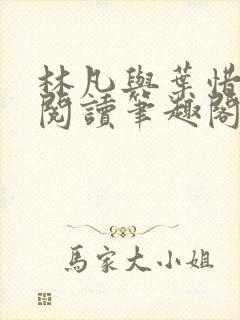 林凡與葉惜
閱讀筆趣閣
馬家大小姐